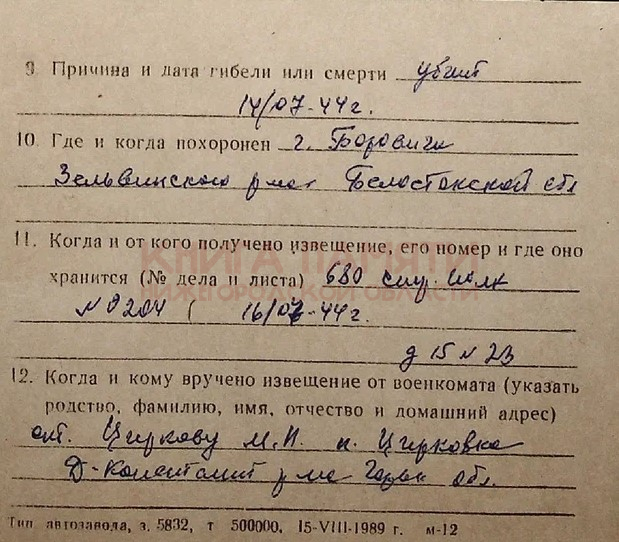 9. Причина и дата гибели или смерти убит
14/07-44г.
10. Где и когда похоронен г. Боровики
Зельвинского р-на Белостокской обл
11. Когда и от кого получено извещение, его номер и где оно
хранится (№ дела и листа) 680 стр. полк
КНИГА ПАМЯТИ
НИЖЕГОРОДСКОЙ ОБЛАСТИ
N 0204 16/07-44г.
д 15 л 23
12. Когда и кому вручено извещение от военкомата (указать
родство, фамилию, имя, отчество и домашний адрес)
от. Циркову М.И.
Д-Константин р-на Горьк обл.
Тип автозавода, з. 5832, т 500000, 15-VIII-1989 г. м-12